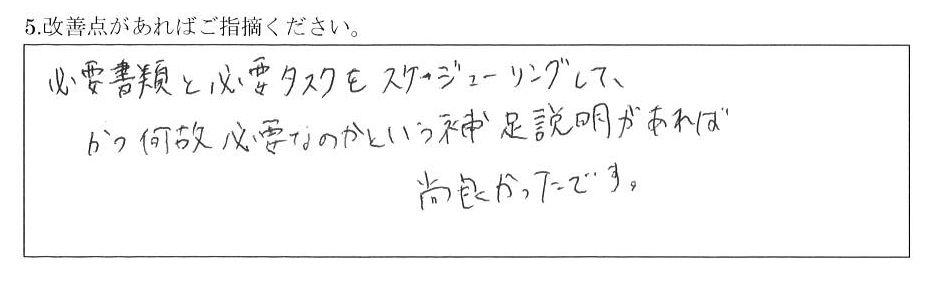 5.改善点があればご指摘ください。
必要書類と必要タスクをスケージューリングして、
かつ何故必要なのかという補足説明があれば
尚良かったです。